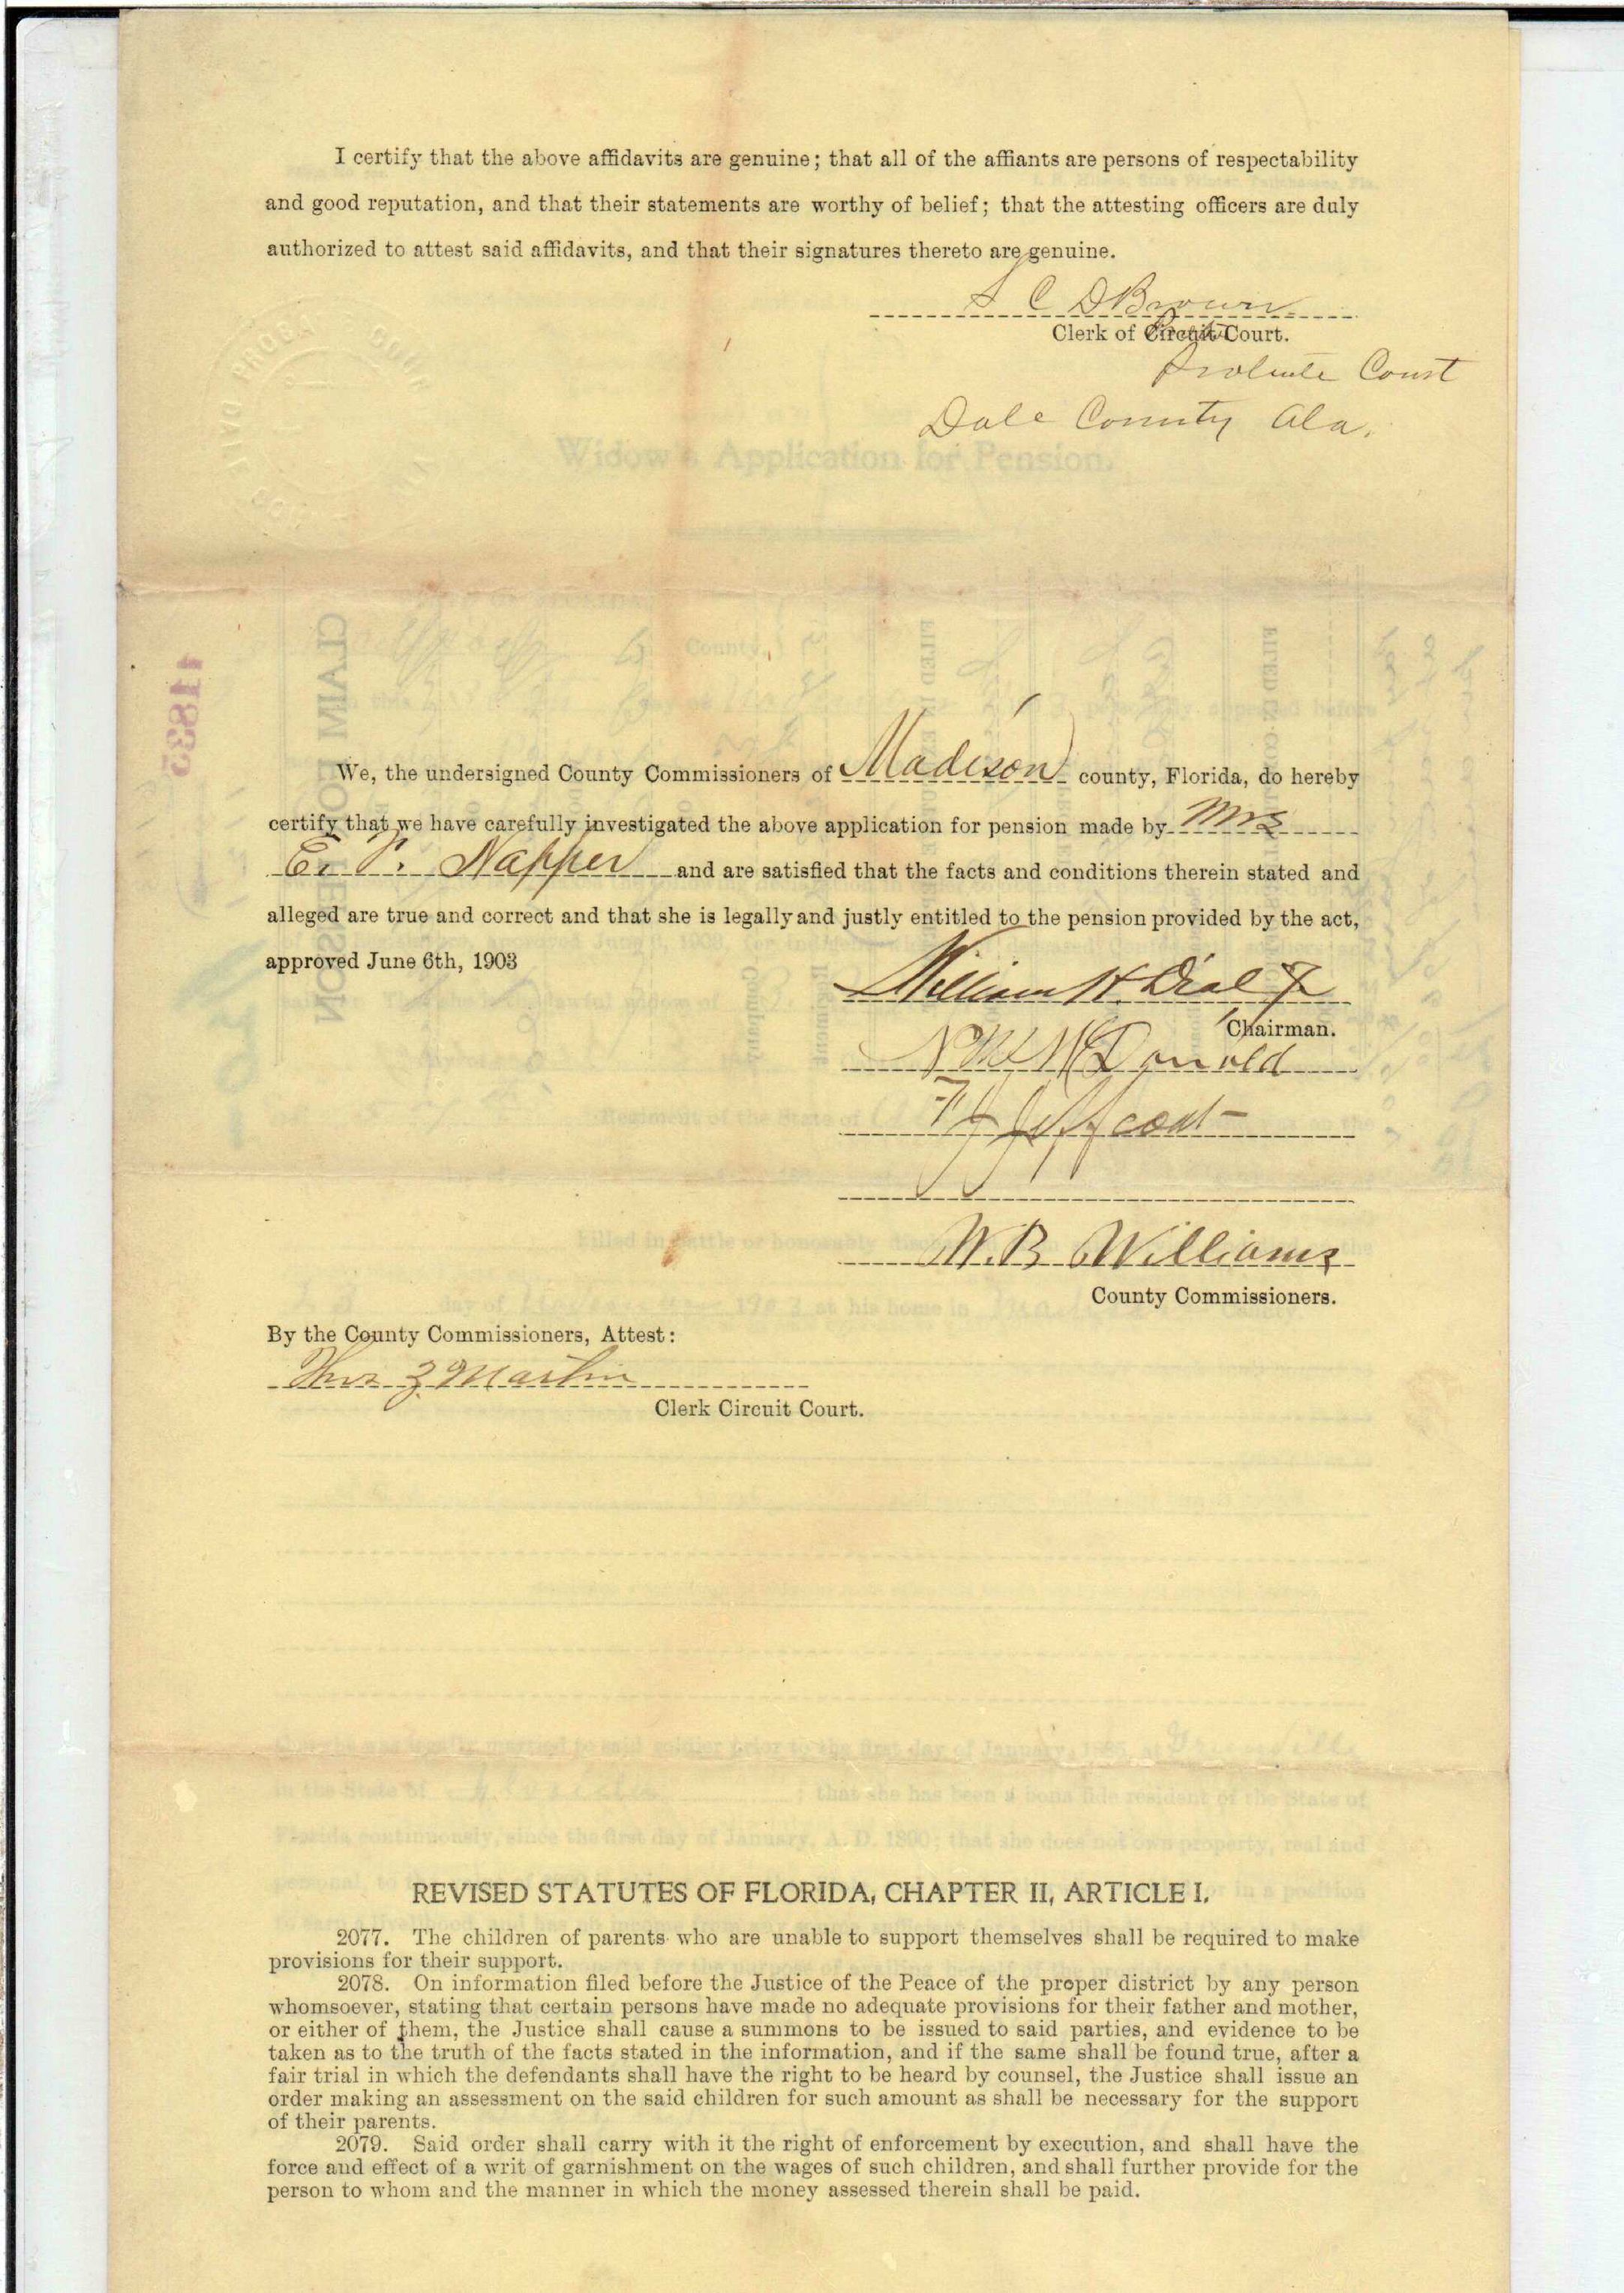 I certify that the above affidavits are genuine; that all of the affiants are persons of respectability
and good reputation, and that their statements are worthy of belief; that the attesting officers are duly
authorized to attest said affidavits, and that their signatures thereto are genuine.
S C D Brown
Clerk of Circuit Court.
Probate Court
Dale County Ala.
Widow's Application for Pension.
We, the undersigned County Commissioners of Madison county, Florida, do hereby
certify that we have carefully investigated the above application for pension made by Mrs
E. P. Napper and are satisfied that the facts and conditions therein stated and
alleged are true and correct and that she is legally and justly entitled to the pension provided by the act,
approved June 6th, 1903
William H. Dial Jr
Chairman.
McDonald
Jeffcoat
W. B Williams
County Commissioners.
By the County Commissioners, Attest:
Thos Z Martin
Clerk Circuit Court.
REVISED STATUTES OF FLORIDA, CHAPTER II, ARTICLE I.
2077. The children of parents who are unable to support themselves shall be required to make
provisions for their support.
2078. On information filed before the Justice of the Peace of the proper district by any person
whomsoever, stating that certain persons have made no adequate provisions for their father and mother,
or either of them, the Justice shall cause a summons to be issued to said parties, and evidence to be
taken as to the truth of the facts stated in the information, and if the same shall be found true, after a
fair trial in which the defendants shall have the right to be heard by counsel, the Justice shall issue an
order making an assessment on the said children for such amount as shall be necessary for the support
of their parents.
2079. Said order shall carry with it the right of enforcement by execution, and shall have the
force and effect of a writ of garnishment on the wages of such children, and shall further provide for the
person to whom and the manner in which the money assessed therein shall be paid.